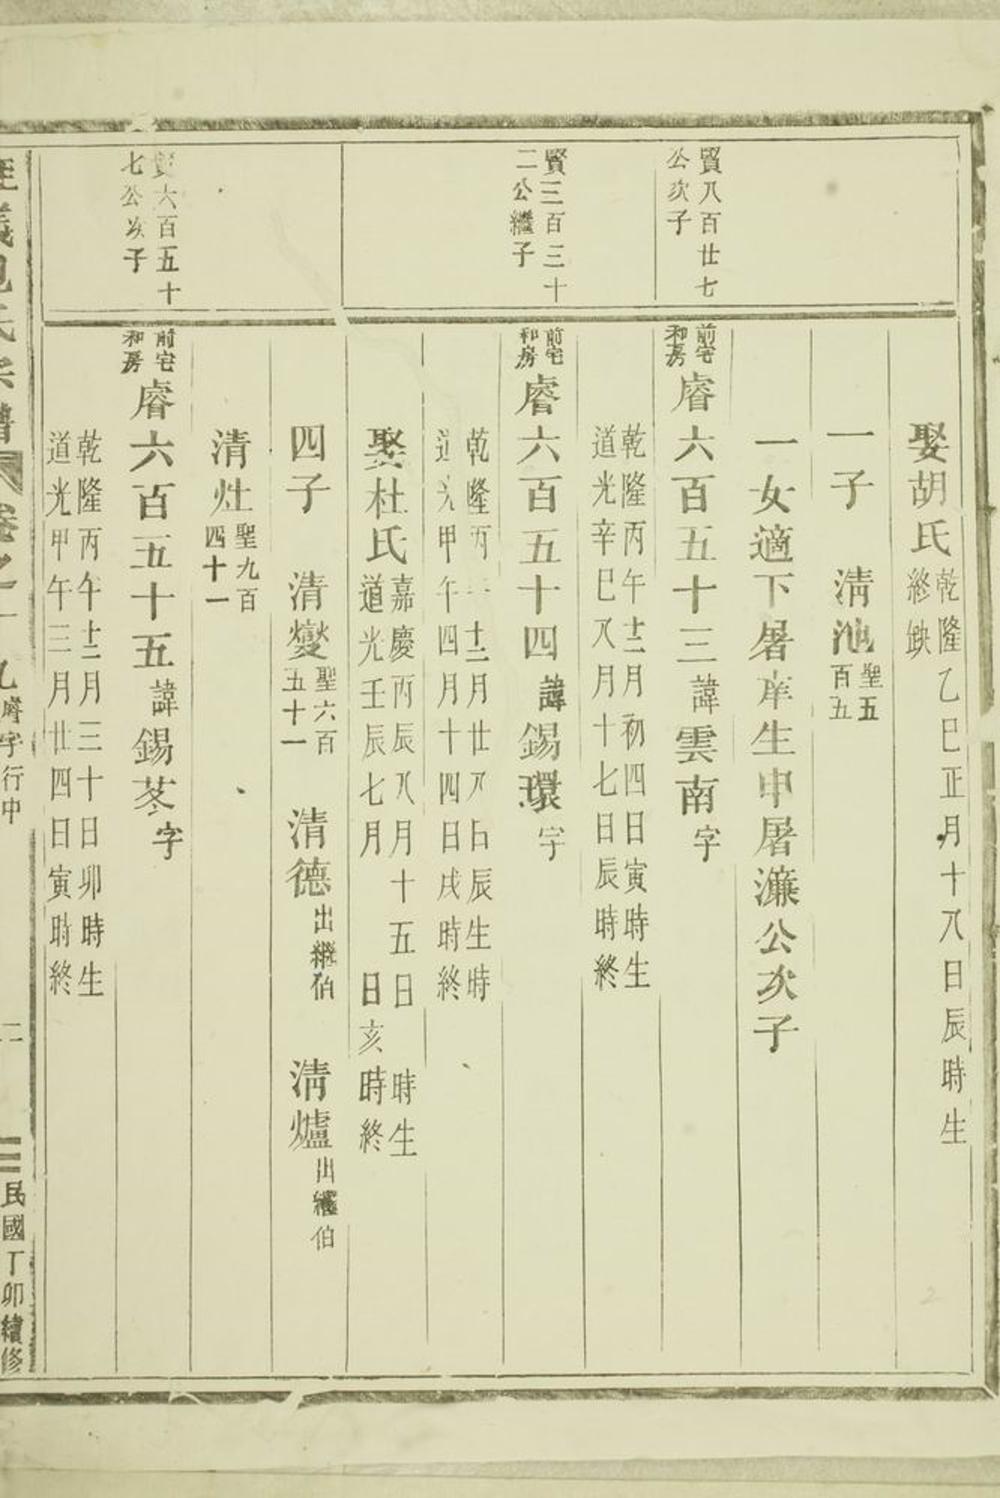 娶胡氏 乾隆乙巳正月十八日辰時生
終缺
一子 清池 聖五百五
一女適下屠庠生申屠濂公次子
賢八百廿七
公次子
前宅和房 睿六百五十三諱雲南字
乾隆丙午十二月初四日寅時生
道光辛巳八月十七日辰時終
賢三百三十
二公繼子
前宅和房 睿六百五十四諱錫環字
乾隆丙 十二月廿八日辰生時
道光甲午四月十四日戌時終
娶杜氏 嘉慶丙辰八月十五日 時生
道光壬辰七月 日亥時終
四子 清燮 聖六百五十一 清德 出繼伯 清爐 出繼伯
清灶 聖九百四十一
賢六百五十
七公次子
前宅和房 睿六百五十五諱錫苳字
乾隆丙午十二月三十日卯時生
道光甲午三月廿四日寅時終
義包氏宗譜 卷之 九睿字行中 二 民國丁卯續修